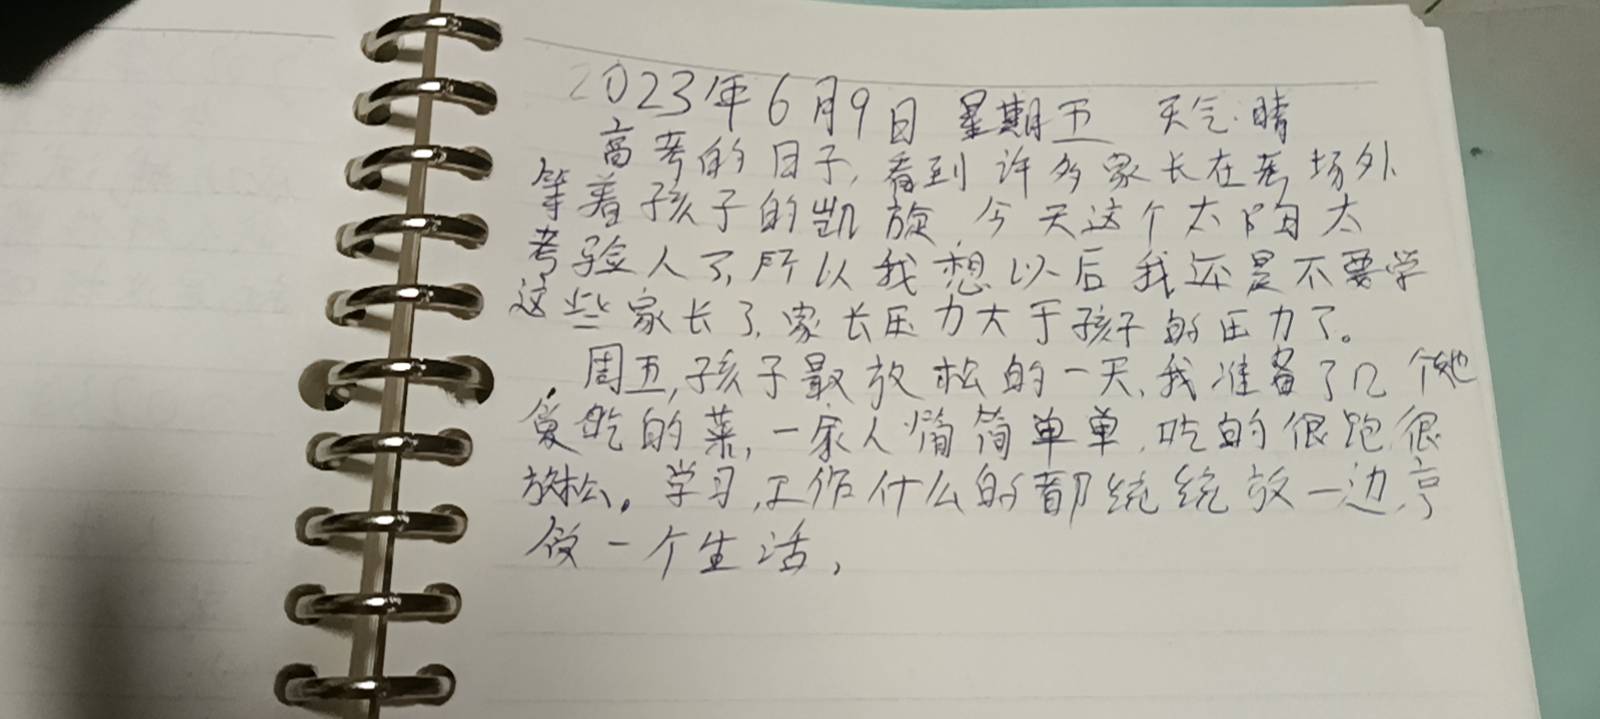 2023年6月9日 星期五 天气:晴
高考的日子,看到许多家长在考场外
等着孩子的凯旋,今天这个太阳太
考验人了,所以我想以后我还是不要学
这些家长了,家长压力大于孩子的压力了。
周五,孩子最放松的一天,我准备了几个她
爱吃的菜,一家人简简单单,吃的很跑很
放松。学习,工作什么的都统统放一边,享
一个生活,